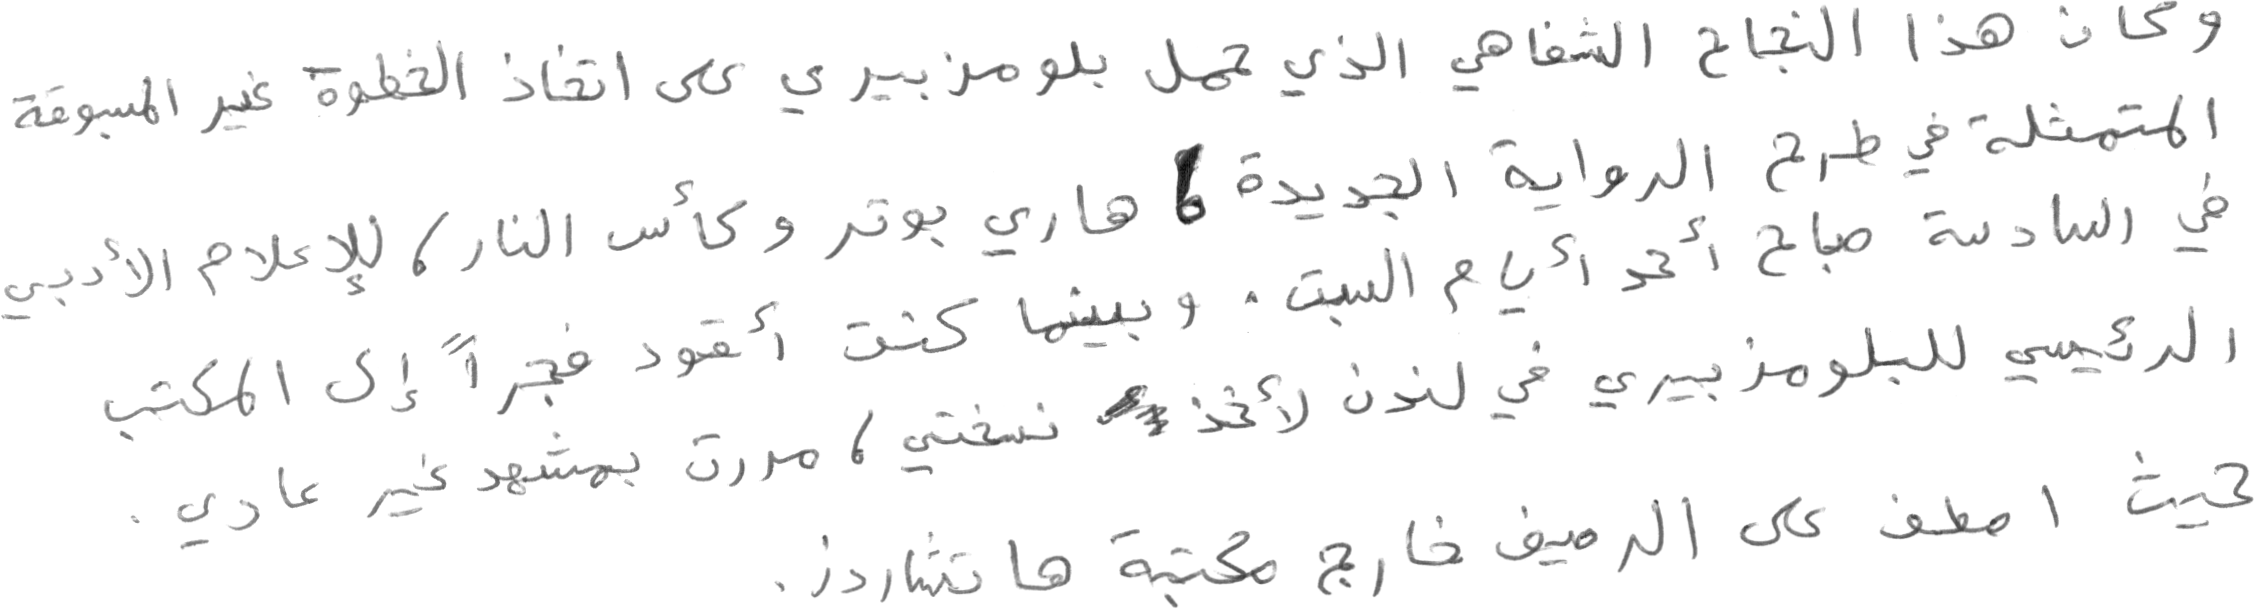 وكان هذا النجاح الشفاهي الذي حمل بلومزبيري على اتخاذ الخطوة غير المسبوقة
المتمثلة في طرح الرواية الجديدة، هاري بوتر وكأس النار، للإعلام الأدبي
في السادسة صباح أحد أيام السبت. وبينما كنت أقود فجراً إلى المكتب
الرئيسي للبلومزبيري في لندن لأخذ نسختي، مررت بمشهد غير عادي.
حيث اصطف على الرصيف خارج مكتبة هاتشاردز.